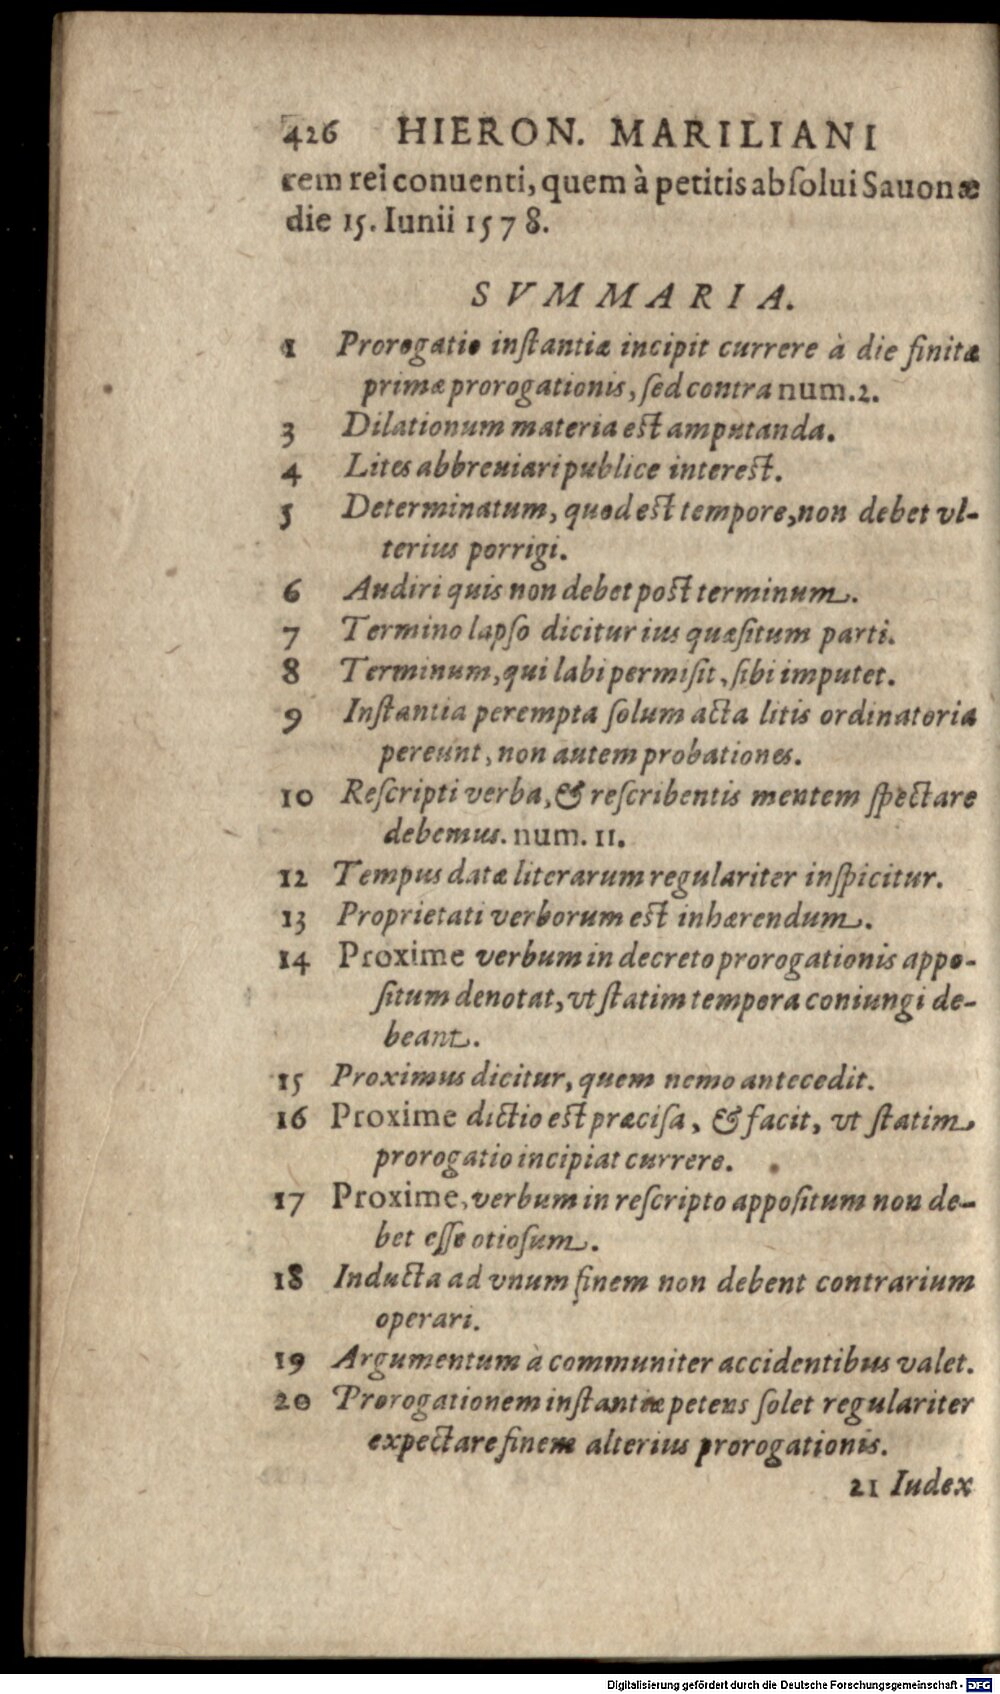 426 HIERON. MARILIANI
rem rei conuenti, quem à petitis absolui Sauonæ
die 15. Iunii 1578.
SVMMARIA.
1 Prorogatio instantiæ incipit currere à die finitæ
primæ prorogationis, sed contra num. 2.
3 Dilationum materia est amputanda.
4 Lites abbreuiari publice interest.
5 Determinatum, quod est tempore, non debet vl-
terius porrigi.
6 Audiri quis non debet post terminum.
7 Termino lapso dicitur ius quæsitum parti.
8 Terminum, qui labi permisit, sibi imputet.
9 Instantia perempta solum acta litis ordinatoria
pereunt, non autem probationes.
10 Rescripti verba, & rescribentis mentem spectare
debemus. num. 11.
12 Tempus datæ literarum regulariter inspicitur.
13 Proprietati verborum est inhærendum.
14 Proxime verbum in decreto prorogationis appo-
situm denotat, vt statim tempora coniungi de-
beant.
15 Proximus dicitur, quem nemo antecedit.
16 Proxime dictio est præcisa, & facit, vt statim
prorogatio incipiat currere.
17 Proxime, verbum in rescripto appositum non de-
bet esse otiosum.
18 Inducta ad vnum finem non debent contrarium
operari.
19 Argumentum à communiter accidentibus valet.
20 Prorogationem instantiæ petens solet regulariter
expectare finem alterius prorogationis.
21 Iudex
Digitalisierung gefördert durch die Deutsche Forschungsgemeinschaft - DFG